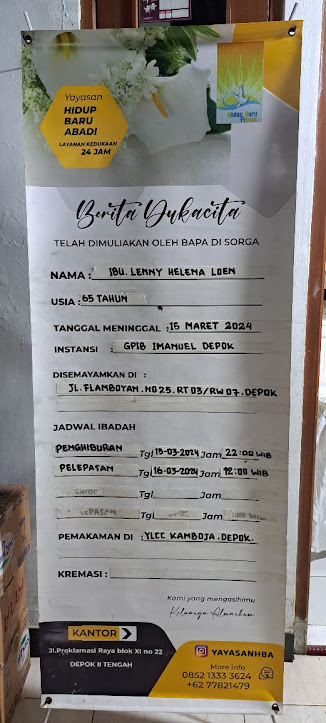 Yayasan
HIDUP
BARU
ABADI
LAYANAN KEDUKAAN
24 JAM
Hidup Baru
Berita Dukacita
TELAH DIMULIAKAN OLEH BAPA DI SORGA
NAMA : IBU. LENNY HELENA LOEN
USIA : 65 TAHUN
TANGGAL MENINGGAL : 15 MARET 2024
INSTANSI : GPIB IMANUEL DEPOK
DISEMAYAMKAN DI :
JL. FLAMBOYAN. NO25. RT 03/RW 07. DEPOK
JADWAL IBADAH
PENGHIBURAN Tgl 15-03-2024 Jam 22:00 WIB
PELEPASAN Tgl 16-03-2024 Jam 12:00 WIB
Tgl Jam
Tgl Jam
PEMAKAMAN DI : YLCC KAMBOJA. DEPOK.
KREMASI :
Kami yang mengasihimu
Keluarga Almarhum
KANTOR
Jl.Proklamasi Raya blok XI no 22
DEPOK II TENGAH
YAYASANHBA
More info
0852 1333 3624
+62 77821479